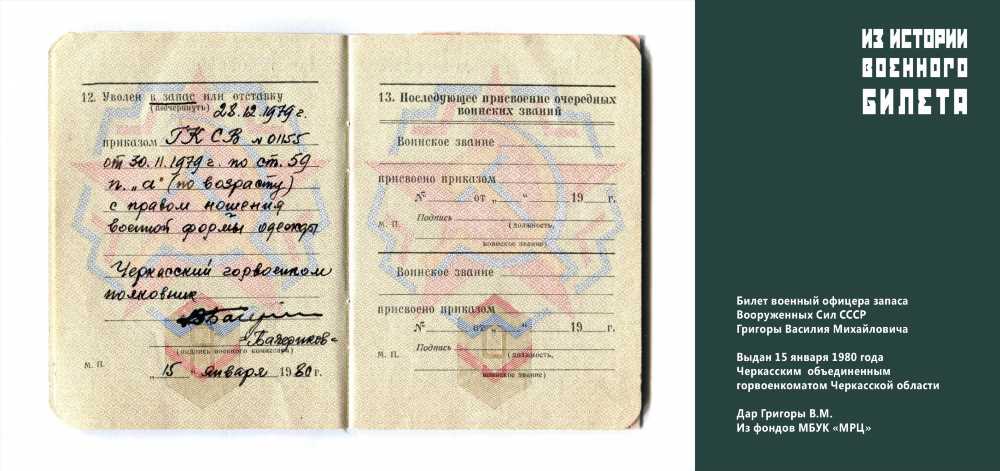 12. Уволен в запас или отставку
(подчеркнуть) 28.12.1979 г.
приказом ГК СВ № 01155
от 30.11.1979 г. по ст. 59
п. „а" (по возрасту)
с правом ношения
военной формы одежды
Черкасский горвоенком
полковник
(подпись военного комиссара)
М. П.
„15" января 1980 г.
13. Последующее присвоение очередных
воинских званий
Воинское звание
присвоено приказом
№ от „ “ 19 г.
М. П. Подпись (должность,
воинское звание)
Воинское звание
присвоено приказом
№ от „ “ 19 г.
М. П. Подпись (должность,
воинское звание)
ИЗ ИСТОРИИ
ВОЕННОГО
БИЛЕТА
Билет военный офицера запаса
Вооруженных Сил СССР
Григоры Василия Михайловича
Выдан 15 января 1980 года
Черкасским объединенным
горвоенкоматом Черкасской области
Дар Григоры В.М.
Из фондов МБУК «МРЦ»